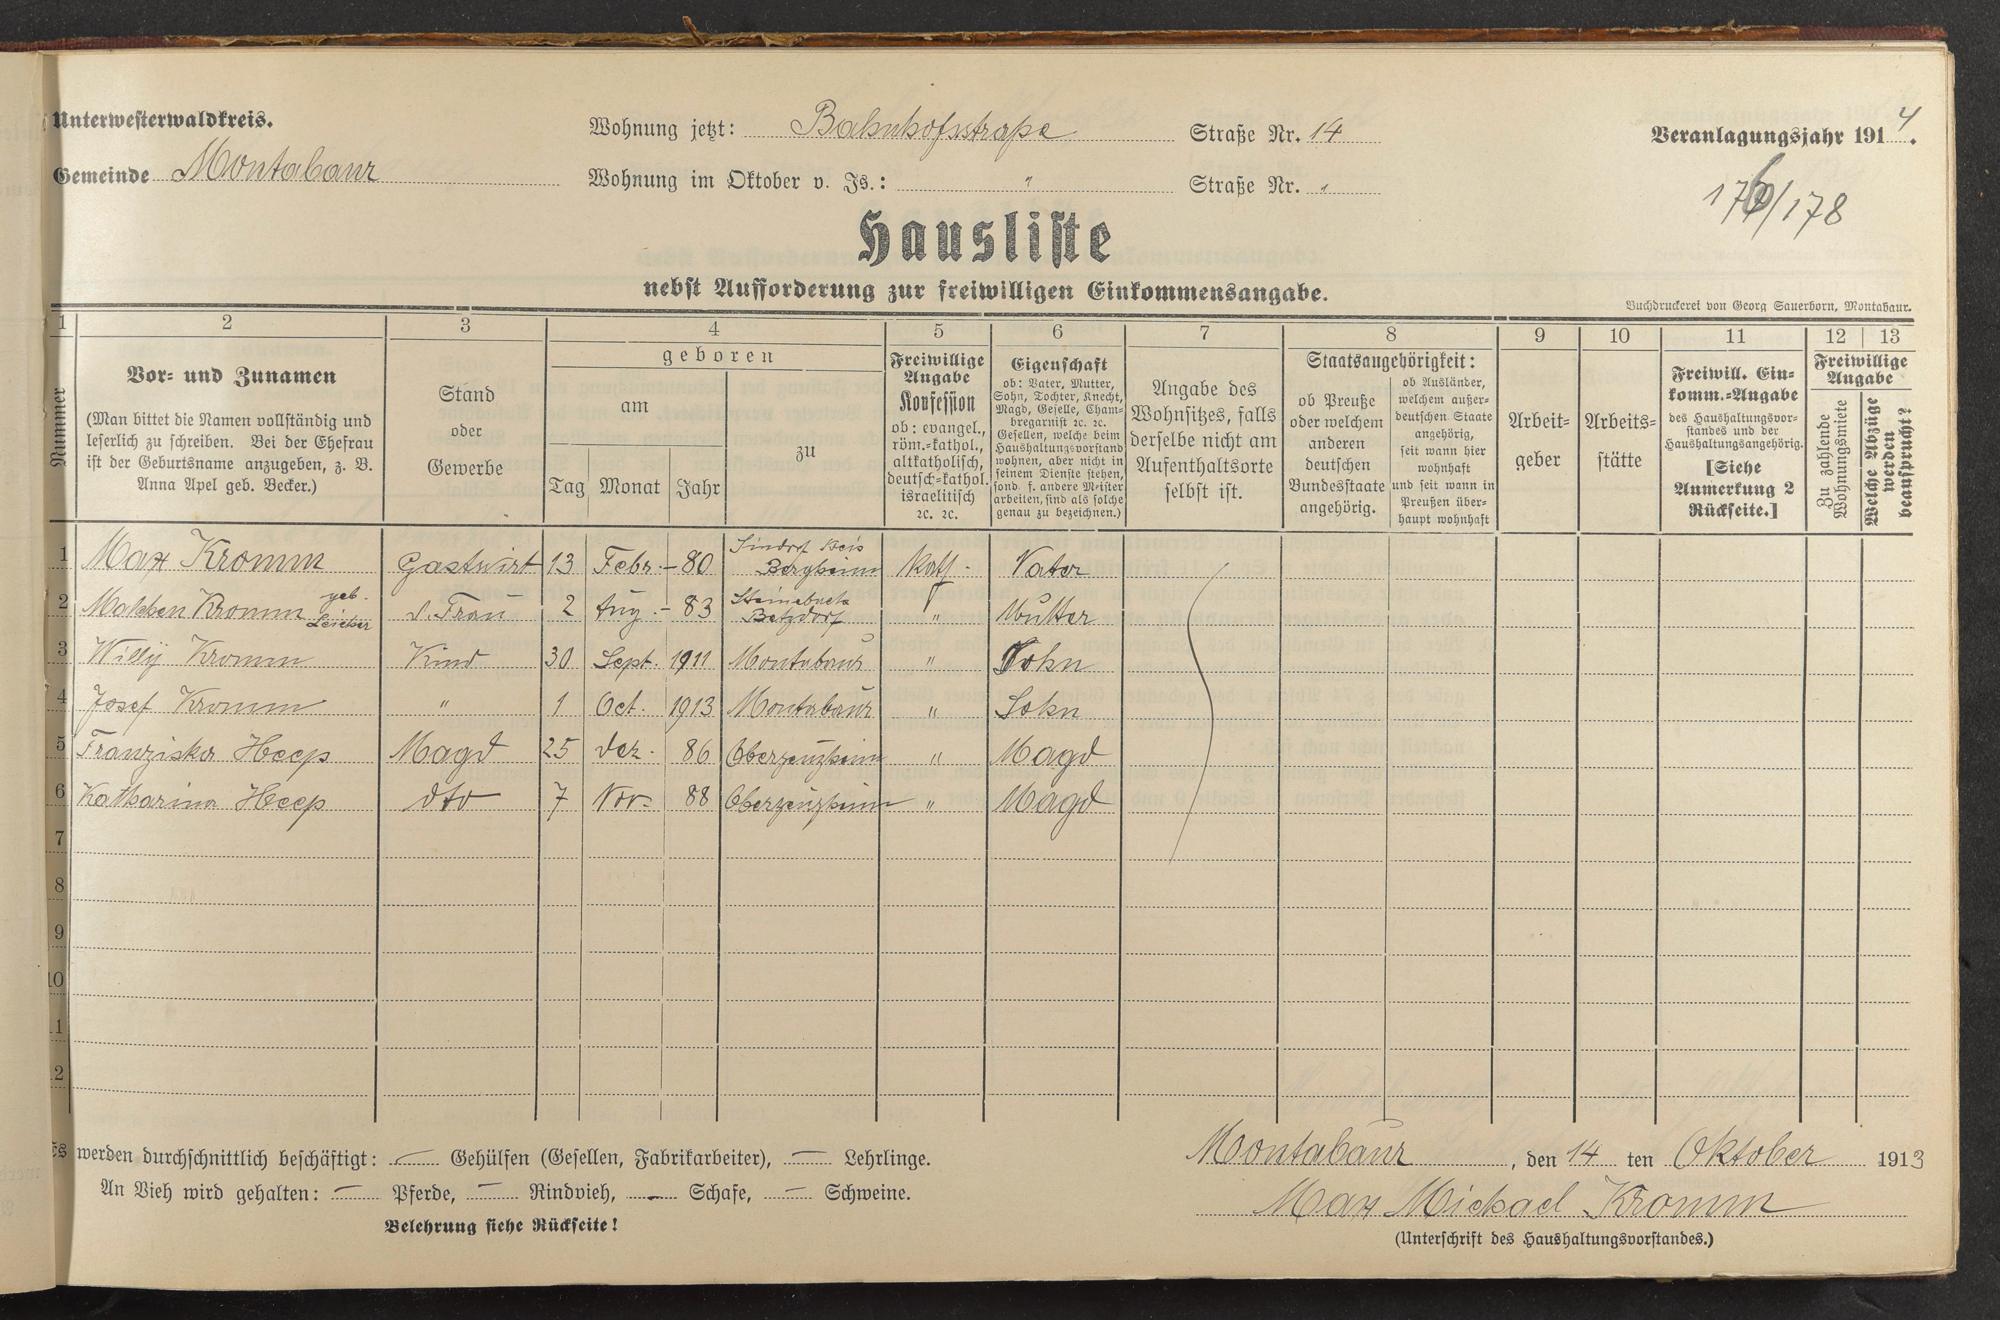 Unterwesterwaldkreis.
Gemeinde Montabaur
Wohnung jetzt: Bahnhofsstraße Straße Nr. 14
Wohnung im Oktober v. Js.: " Straße Nr. "
Veranlagungsjahr 1914.
/178
Hausliste
nebst Aufforderung zur freiwilligen Einkommensangabe.
Buchdruckerei von Georg Sauerborn, Montabaur.
1 2 3 4 5 6 7 8 9 10 11 12 13
Nummer
Vor- und Zunamen
(Man bittet die Namen vollständig und
leserlich zu schreiben. Bei der Ehefrau
ist der Geburtsname anzugeben, z. B.
Anna Apel geb. Becker.)
Stand
oder
Gewerbe
geboren
am
Tag Monat Jahr
zu
Freiwillige
Angabe
Konfession
ob: evangel.,
röm.-kathol.,
altkatholisch,
deutsch-kathol.
israelitisch
ꝛc. ꝛc.
Eigenschaft
ob: Vater, Mutter,
Sohn, Tochter, Knecht,
Magd, Geselle, Cham-
bregarnist ꝛc. ꝛc.
Gesellen, welche beim
Haushaltungsvorstand
wohnen, aber nicht in
seinem Dienste stehen,
sond. f. andere Meister
arbeiten, sind als solche
genau zu bezeichnen.)
Angabe des
Wohnsitzes, falls
derselbe nicht am
Aufenthaltsorte
selbst ist.
Staatsangehörigkeit:
ob Preuße
oder welchem
anderen
deutschen
Bundesstaate
angehörig.
ob Ausländer,
welchem außer-
deutschen Staate
angehörig,
seit wann hier
wohnhaft
und seit wann in
Preußen über-
haupt wohnhaft
Arbeit-
geber
Arbeits-
stätte
Freiwill. Ein-
komm.-Angabe
des Haushaltungsvor-
standes und der
Haushaltungsangehörig.
[Siehe
Anmerkung 2
Rückseite.]
Freiwillige
Angabe
Zu zahlende
Wohnungsmiete
Welche Abzüge
werden
beansprucht?
1 Max Kromm Gastwirt 13 Febr. - 80 Sindorf Kreis Bergheim Kath. Vater
2 Kromm geb. d. Frau 2 Aug. - 83 Steinebach Betzdorf " Mutter
3 Willy Kromm Kind 30 Sept. 1911 Montabaur " Sohn
4 Josef Kromm " 1 Oct. 1913 Montabaur " Sohn
5 Franziska Heep Magd 25 Dez. 86 Oberzeuzheim " Magd
6 Katharina Heep dto 7 Nov. 88 Oberzeuzheim " Magd
7
8
9
10
11
12
Es werden durchschnittlich beschäftigt: — Gehülfen (Gesellen, Fabrikarbeiter), — Lehrlinge.
An Vieh wird gehalten: — Pferde, — Rindvieh, — Schafe, — Schweine.
Belehrung siehe Rückseite!
Montabaur, den 14 ten Oktober 1913
Max Michael Kromm
(Unterschrift des Haushaltungsvorstandes.)